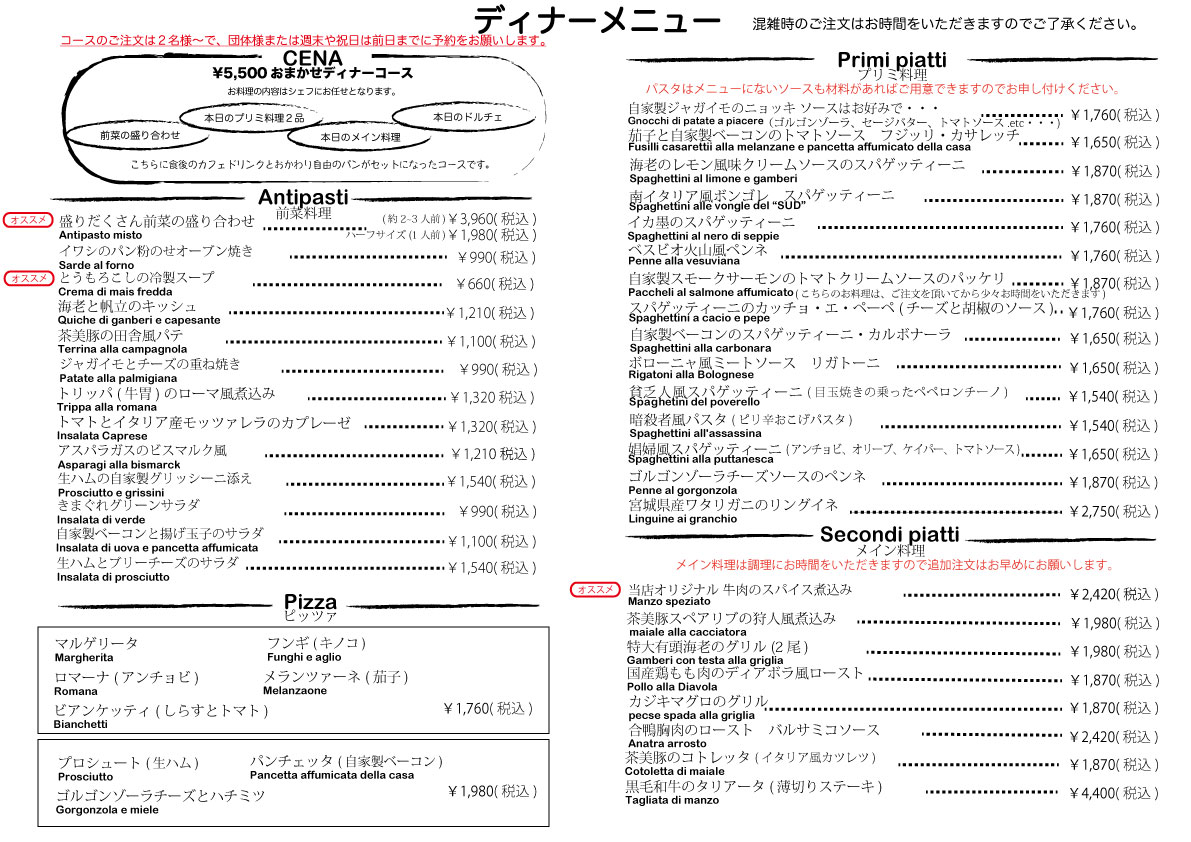 ディナーメニュー
混雑時のご注文はお時間をいただきますのでご了承ください。
コースのご注文は２名様〜で、団体様または週末や祝日は前日までに予約をお願いします。
CENA
¥5,500 おまかせディナーコース
お料理の内容はシェフにお任せとなります。
前菜の盛り合わせ
本日のプリミ料理２品
本日のメイン料理
本日のドルチェ
こちらに食後のカフェドリンクとおかわり自由のパンがセットになったコースです。
Antipasti
前菜料理
オススメ 盛りだくさん前菜の盛り合わせ (約2-3人前)￥3,960(税込)
Antipasto misto ハーフサイズ(1人前)￥1,980(税込)
イワシのパン粉のせオーブン焼き ￥990(税込)
Sarde al forno
オススメ とうもろこしの冷製スープ ￥660(税込)
Crema di mais fredda
海老と帆立のキッシュ ￥1,210(税込)
Quiche di ganberi e capesante
茶美豚の田舎風パテ ￥1,100(税込)
Terrina alla campagnola
ジャガイモとチーズの重ね焼き ￥990(税込)
Patate alla palmigiana
トリッパ(牛胃)のローマ風煮込み ￥1,320(税込)
Trippa alla romana
トマトとイタリア産モッツァレラのカプレーゼ ￥1,320(税込)
Insalata Caprese
アスパラガスのビスマルク風 ￥1,210(税込)
Asparagi alla bismarck
生ハムの自家製グリッシーニ添え ￥1,540(税込)
Prosciutto e grissini
きまぐれグリーンサラダ ￥990(税込)
Insalata di verde
自家製ベーコンと揚げ玉子のサラダ ￥1,100(税込)
Insalata di uova e pancetta affumicata
生ハムとブリーチーズのサラダ ￥1,540(税込)
Insalata di prosciutto
Pizza
ピッツァ
マルゲリータ フンギ(キノコ)
Margherita Funghi e aglio
ロマーナ(アンチョビ) メランツァーネ(茄子)
Romana Melanzaone
ビアンケッティ(しらすとトマト) ￥1,760(税込)
Bianchetti
プロシュート(生ハム) パンチェッタ(自家製ベーコン)
Prosciutto Pancetta affumicata della casa
ゴルゴンゾーラチーズとハチミツ ￥1,980(税込)
Gorgonzola e miele
Primi piatti
プリミ料理
パスタはメニューにないソースも材料があればご用意できますのでお申し付けください。
自家製ジャガイモのニョッキ ソースはお好みで・・・ ￥1,760(税込)
Gnocchi di patate a piacere (ゴルゴンゾーラ、セージバター、トマトソース.etc・・・)
茄子と自家製ベーコンのトマトソース フジッリ・カサレッチ ￥1,650(税込)
Fusilli casarettii alla melanzane e pancetta affumicato della casa
海老のレモン風味クリームソースのスパゲッティーニ ￥1,870(税込)
Spaghettini al limone e gamberi
南イタリア風ボンゴレ スパゲッティーニ ￥1,870(税込)
Spaghettini alle vongle del “SUD”
イカ墨のスパゲッティーニ ￥1,760(税込)
Spaghettini al nero di seppie
ベスビオ火山風ペンネ ￥1,760(税込)
Penne alla vesuviana
自家製スモークサーモンのトマトクリームソースのパッケリ ￥1,870(税込)
Paccheli al salmone affumicato(こちらのお料理は、ご注文を頂いてから少々お時間をいただきます)
スパゲッティーニのカッチョ・エ・ペーペ(チーズと胡椒のソース) ￥1,760(税込)
Spaghettini a cacio e pepe
自家製ベーコンのスパゲッティーニ・カルボナーラ ￥1,650(税込)
Spaghettini alla carbonara
ボローニャ風ミートソース リガトーニ ￥1,650(税込)
Rigatoni alla Bolognese
貧乏人風スパゲッティーニ(目玉焼きの乗ったペペロンチーノ) ￥1,540(税込)
Spaghetini del poverello
暗殺者風パスタ(ピリ辛おこげパスタ) ￥1,540(税込)
Spaghettini all'assassina
娼婦風スパゲッティーニ(アンチョビ、オリーブ、ケイパー、トマトソース) ￥1,650(税込)
Spaghettini alla puttanesca
ゴルゴンゾーラチーズソースのペンネ ￥1,870(税込)
Penne al gorgonzola
宮城県産ワタリガニのリングイネ ￥2,750(税込)
Linguine ai granchio
Secondi piatti
メイン料理
メイン料理は調理にお時間をいただきますので追加注文はお早めにお願いします。
オススメ 当店オリジナル 牛肉のスパイス煮込み ￥2,420(税込)
Manzo speziato
茶美豚スペアリブの狩人風煮込み ￥1,980(税込)
maiale alla cacciatora
特大有頭海老のグリル(2尾) ￥1,980(税込)
Gamberi con testa alla griglia
国産鶏もも肉のディアボラ風ロースト ￥1,870(税込)
Pollo alla Diavola
カジキマグロのグリル ￥1,870(税込)
pecse spada alla griglia
合鴨胸肉のロースト バルサミコソース ￥2,420(税込)
Anatra arrosto
茶美豚のコトレッタ(イタリア風カツレツ) ￥1,870(税込)
Cotoletta di maiale
黒毛和牛のタリアータ(薄切りステーキ) ￥4,400(税込)
Tagliata di manzo